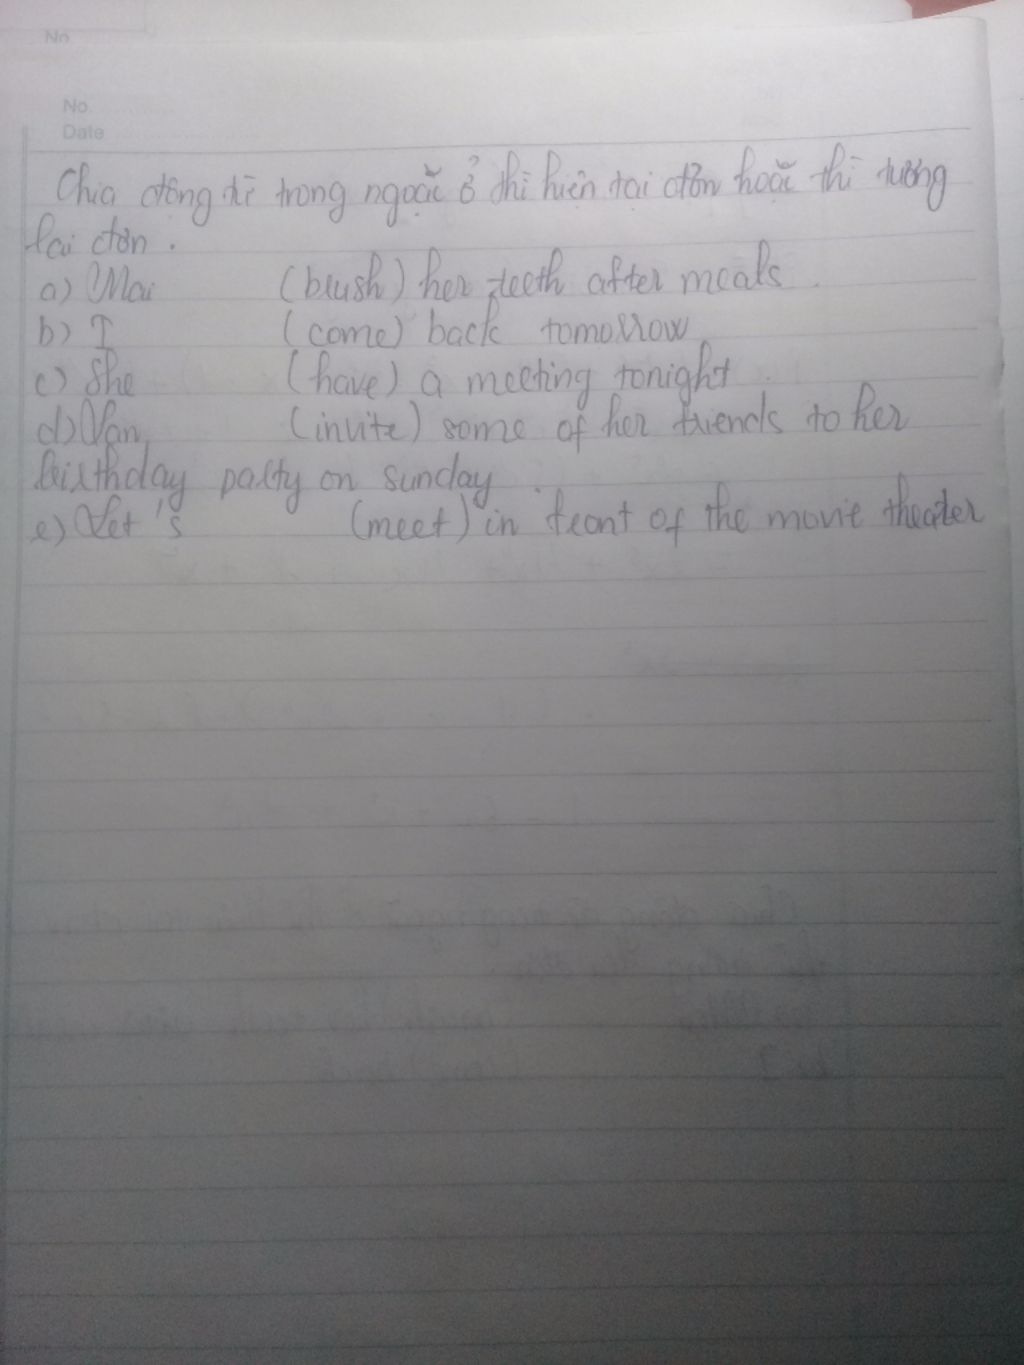 No
No.
Date
Chia động từ trong ngoặc ở thì hiện tại đơn hoặc thì tương
lai đơn.
a) Mai (brush) her teeth after meals.
b) I (come) back tomorrow
c) She (have) a meeting tonight.
d) Van (invite) some of her friends to her
birthday party on sunday.
e) Let's (meet) in front of the movie theater